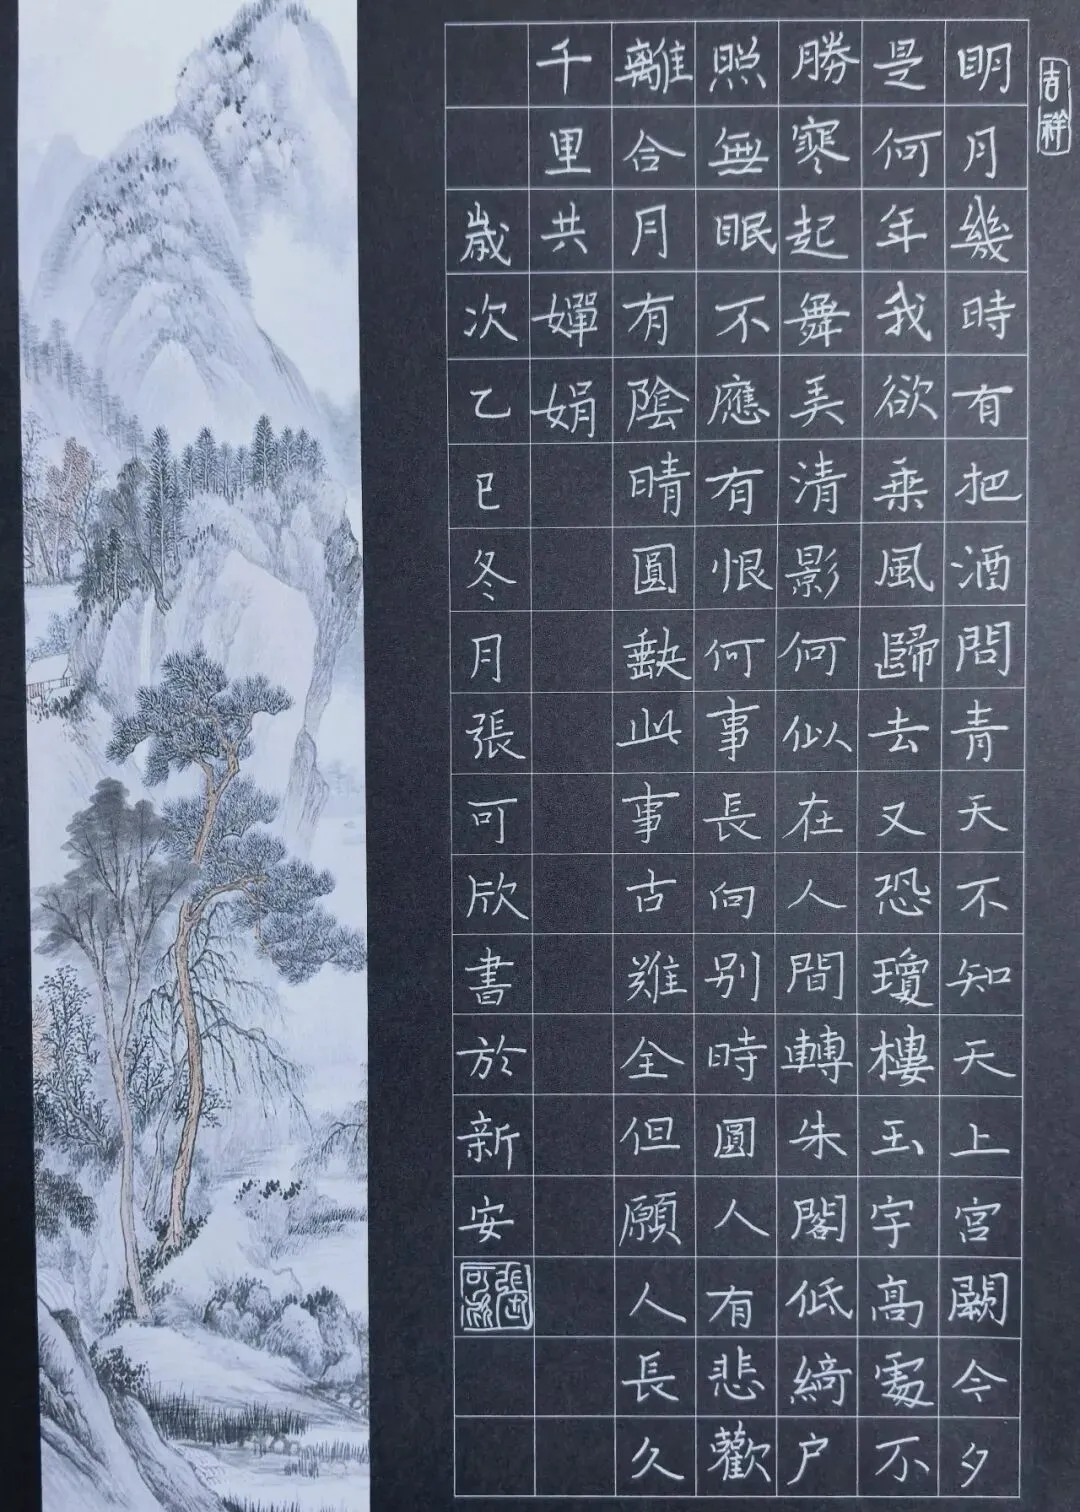 吉祥
明月幾時有把酒問青天不知天上宮闕今夕
是何年我欲乗風歸去又恐瓊樓玉宇高處不
勝寒起舞弄清影何似在人間轉朱閣低綺户
照無眠不應有恨何事長向别時圓人有悲歡
離合月有陰晴圓缺此事古難全但願人長久
千里共嬋娟
歲次乙巳冬月張可欣書於新安